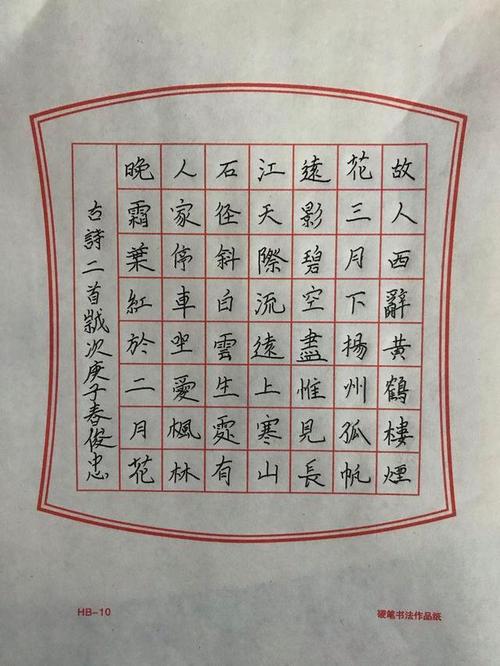 故人西辭黃鶴樓煙
花三月下揚州孤帆
遠影碧空盡惟見長
江天際流遠上寒山
石径斜白雲生處有
人家停車坐愛楓林
晚霜葉紅於二月花
古詩二首歲次庚子春俊忠
HB-10
硬笔书法作品纸